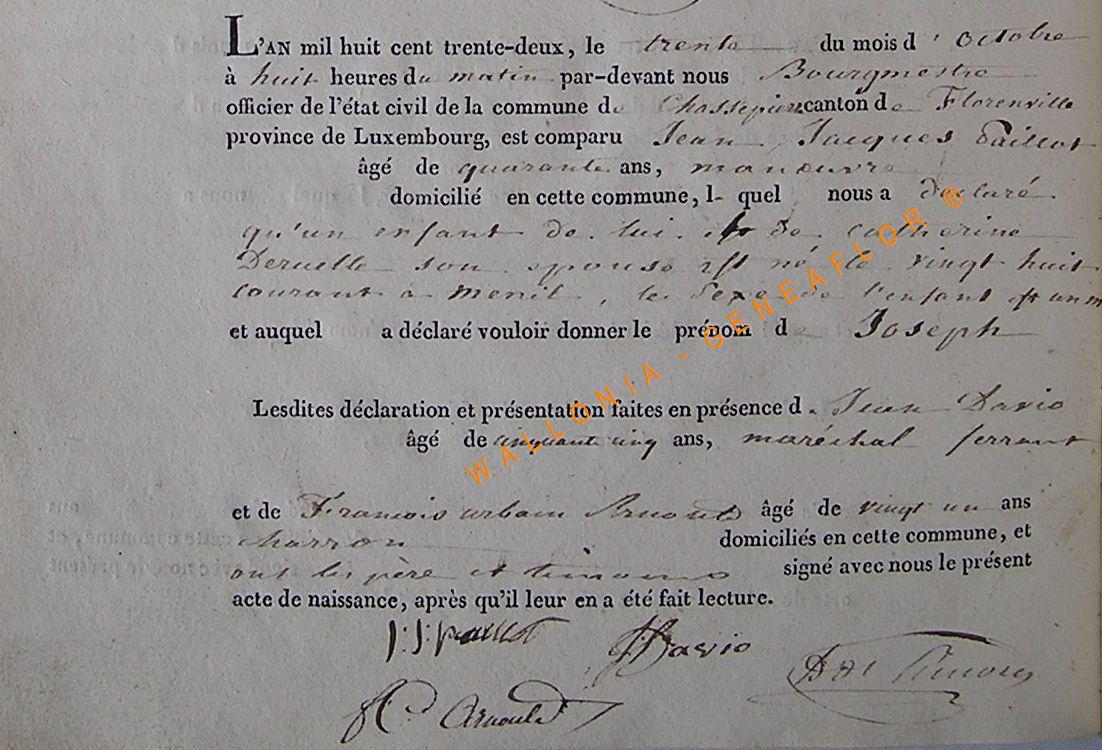 L'AN mil huit cent trente-deux, le trente du mois d'Octobre
à huit heures du matin par-devant nous Bourgmestre
officier de l'état civil de la commune de Chassepierre canton de Florenville
province de Luxembourg, est comparu Jean Jacques Paillot
âgé de quarante ans, manoeuvre
domicilié en cette commune, l- quel nous a déclaré
qu'un enfant de lui et de Catherine
Deruelle son épouse est né le vingt huit
courant à Menil, le sexe de l'enfant est un m
et auquel a déclaré vouloir donner le prénom de Joseph
Lesdites déclaration et présentation faites en présence de Jean Davio
âgé de cinquante cinq ans, maréchal ferrant
et de Francois urbain Arnould âgé de vingt un ans
charron domiciliés en cette commune, et
ont les père et témoins signé avec nous le présent
acte de naissance, après qu'il leur en a été fait lecture.
J: J: paillot
J: Davio
Arnould
WALLONIA - GENEAFLOR ®